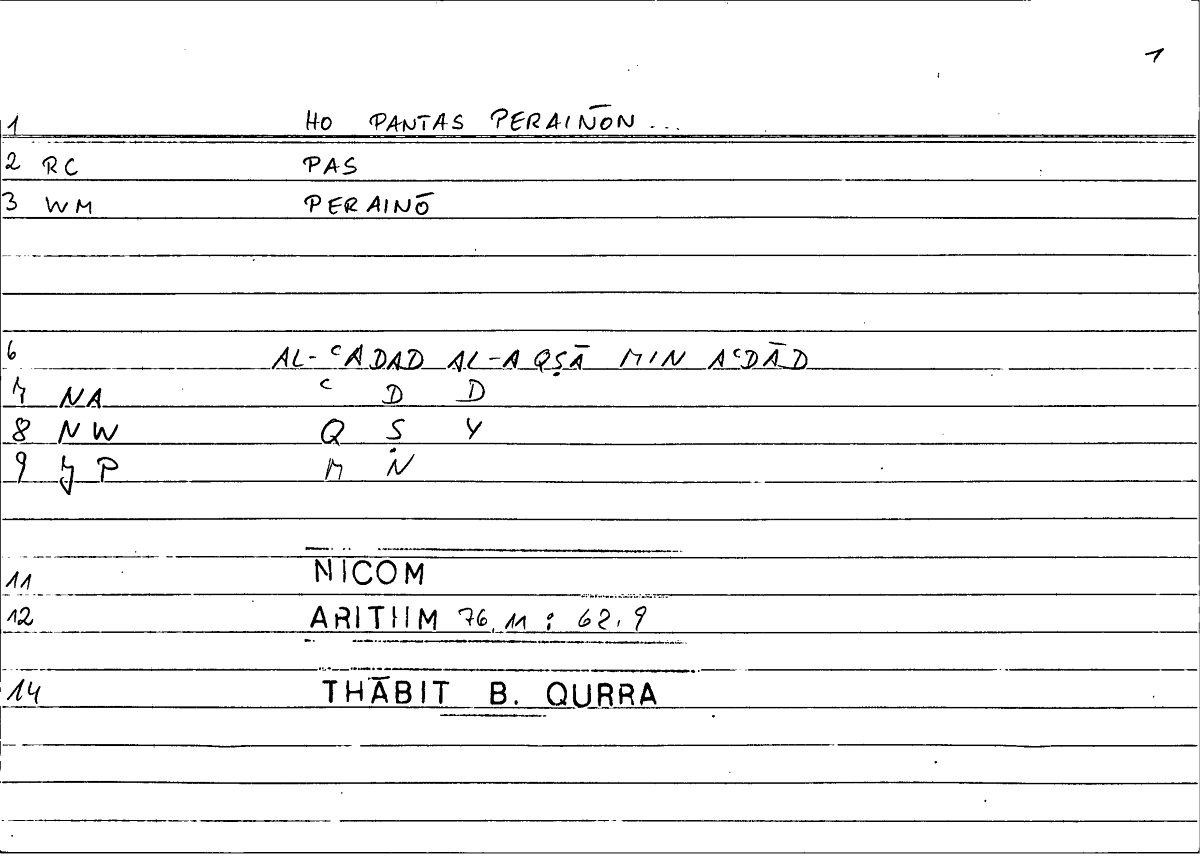 1
1 HO PANTAS PERAINŌN ...
2 RC PAS
3 WM PERAINŌ
6 AL-ᶜADAD AL-AQṢĀ MIN AᶜDĀD
7 NA ᶜ D D
8 NW Q Ṣ Y
9 JP M N
11 NICOM
12 ARITHM 76,11 : 62,9
14 THĀBIT B. QURRA